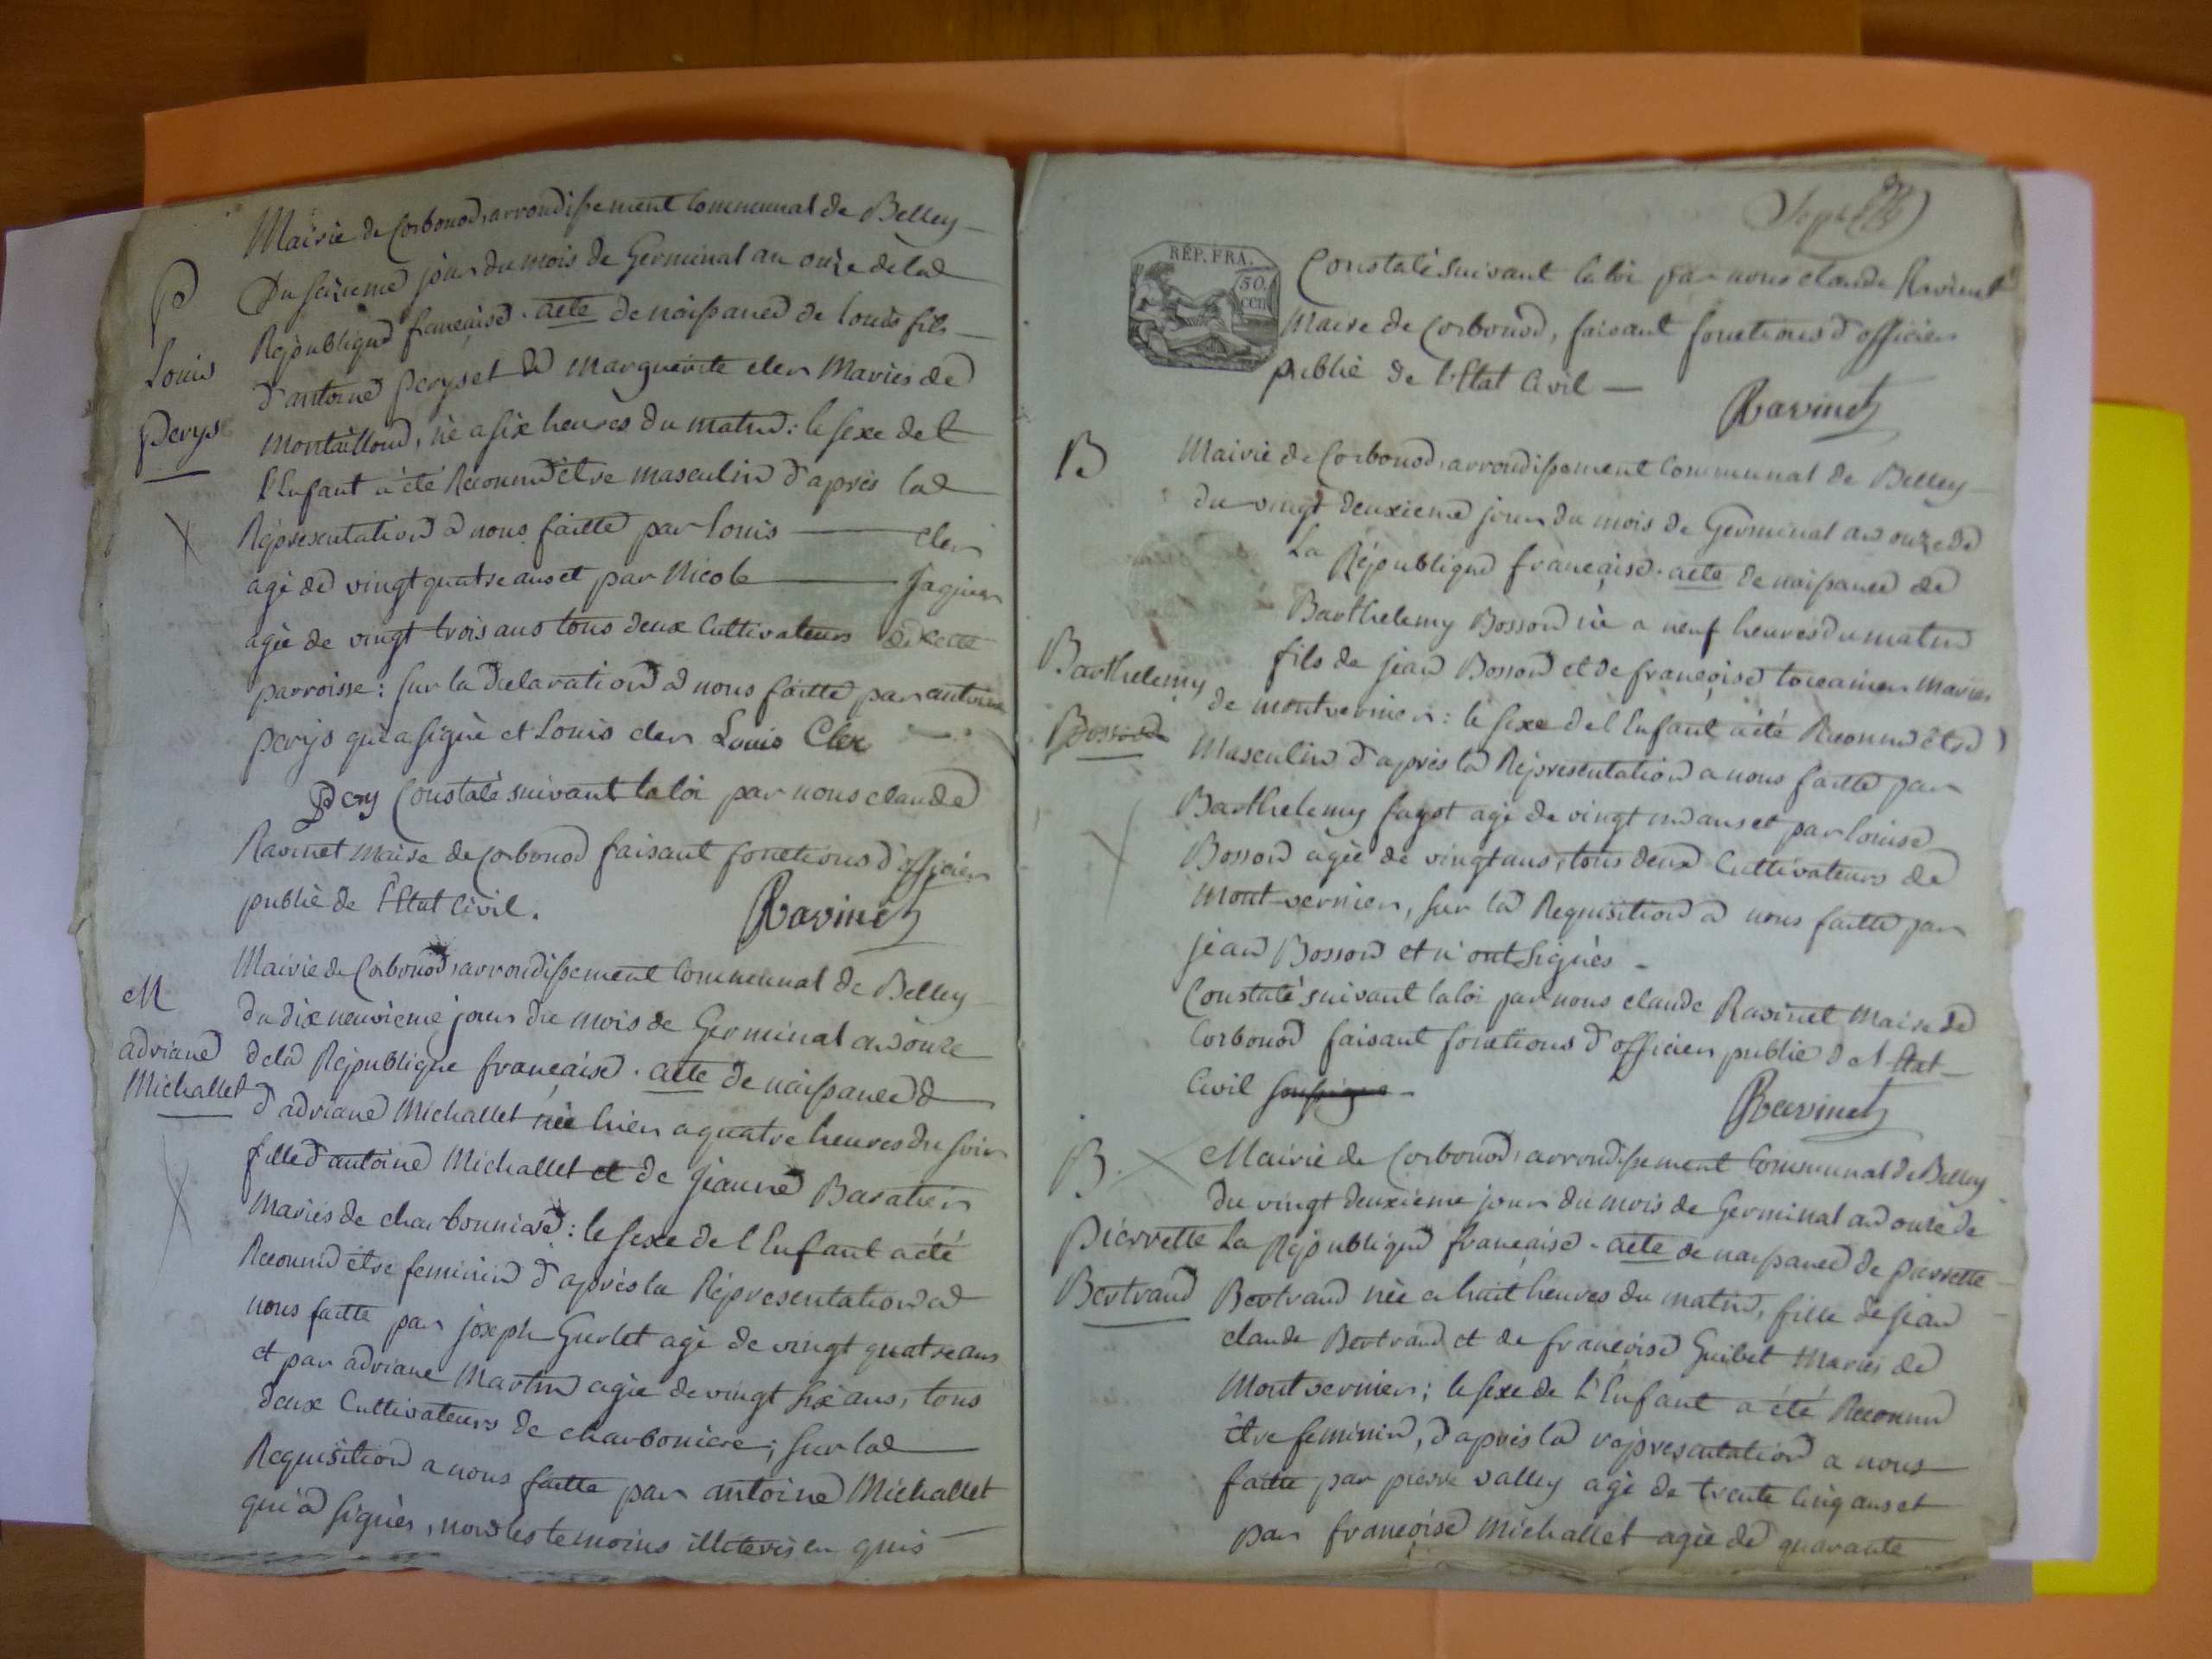 Mairie de Corbonod, arrondissement Communal de Belley
P
Du seizieme jour du mois de Germinal an onze de la
Republique française. acte de naissance de louis fils
Louis
d'antoine peryset de marguerite cler Mariés de
perys
montailloud, né a six heures du matin: le sexe de l
l'Enfant a été Reconnu être masculin d'après la
Représentation a nous faitte par louis cler
agé de vingt quatre ans et par Nicole
agée de vingt trois ans tous deux Cultivateurs de cette
parroisse: sur la déclaration a nous faitte par antoine
perys qui a signé et Louis cler Louis Cler
Pery Constaté suivant la loi par nous claude
Ravinet maire de corbonod faisant fonctions d'officier
public de l'Etat Civil.
Ravinet
Mairie de Corbonod, arrondissement Communal de Belley
M
du dix neuvieme jour du mois de Germinal an onze
adriane
de la République française. acte de naissance d
Michallet
d'adriane Michallet née hier a quatre heures du soir
fille d'antoine Michallet et de jeanne Bavatier
Mariés de charbonniere: le sexe de l Enfant a été
Reconnu etre feminin d'après la Représentation a
nous faitte par joseph Gurlet agé de vingt quatre ans
et par adriane Martin agée de vingt six ans, tous
deux Cultivateurs de charboniere; sur la
Requisition a nous faitte par antoine Michallet
qui a signés, non les temoins illiterés en quis
RÉP. FRA.
50.
CEN
Constaté suivant la loi par nous claude Ravinet
Maire de Corbonod, faisant fonctions d'officier
public de l'Etat Civil
Ravinet
B
Mairie de Corbonod, arrondissement Communal de Belley
du vingt deuxieme jour du mois de Germinal an onze de
La République française. acte de naissance de
Barthelemy Bosson né a neuf heures du matin
Barthelemy
fils de jean Bosson et de françoise Mariés
Bosson
de montvernier: le sexe de l Enfant a été Reconnu être
Masculin d'après la Représentation a nous faitte par
Barthelemy fayot agé de vingt un ans et par louise
Bosson agée de vingt ans, tous deux Cultivateurs de
Mont-vernier, sur la Requisition a nous faitte par
jean Bosson et n'ont signés.
Constaté suivant la loi par nous claude Ravinet Maire de
Corbonod faisant fonctions d'officier public de l Etat
Civil
Ravinet
B.
Mairie de Corbonod, arrondissement Communal de Belley
du vingt deuxieme jour du mois de Germinal an onze de
Pierrette
La République française. acte de naissance de pierrette
Bertrand
Bertrand née a huit heures du matin, fille de jean
claude Bertrand et de françoise Guibet Mariés de
Mont vernier; le sexe de l'Enfant a été Reconnu
être feminin, d'après la représentation a nous
faitte par pierre valley agé de trente cinq ans et
par françoise Michallet agée de quarante